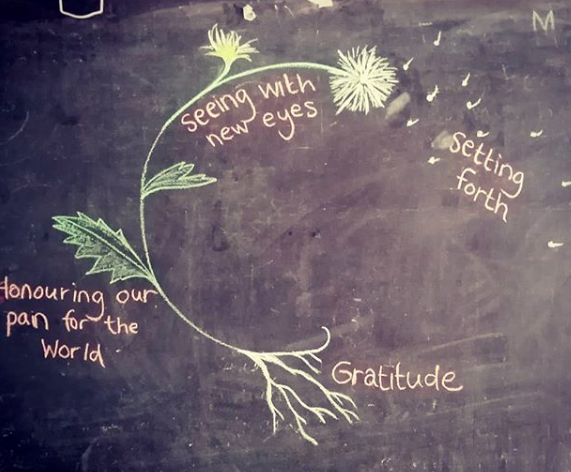 M
seeing with
new eyes
setting
forth
Honouring our
pain for the
World
Gratitude